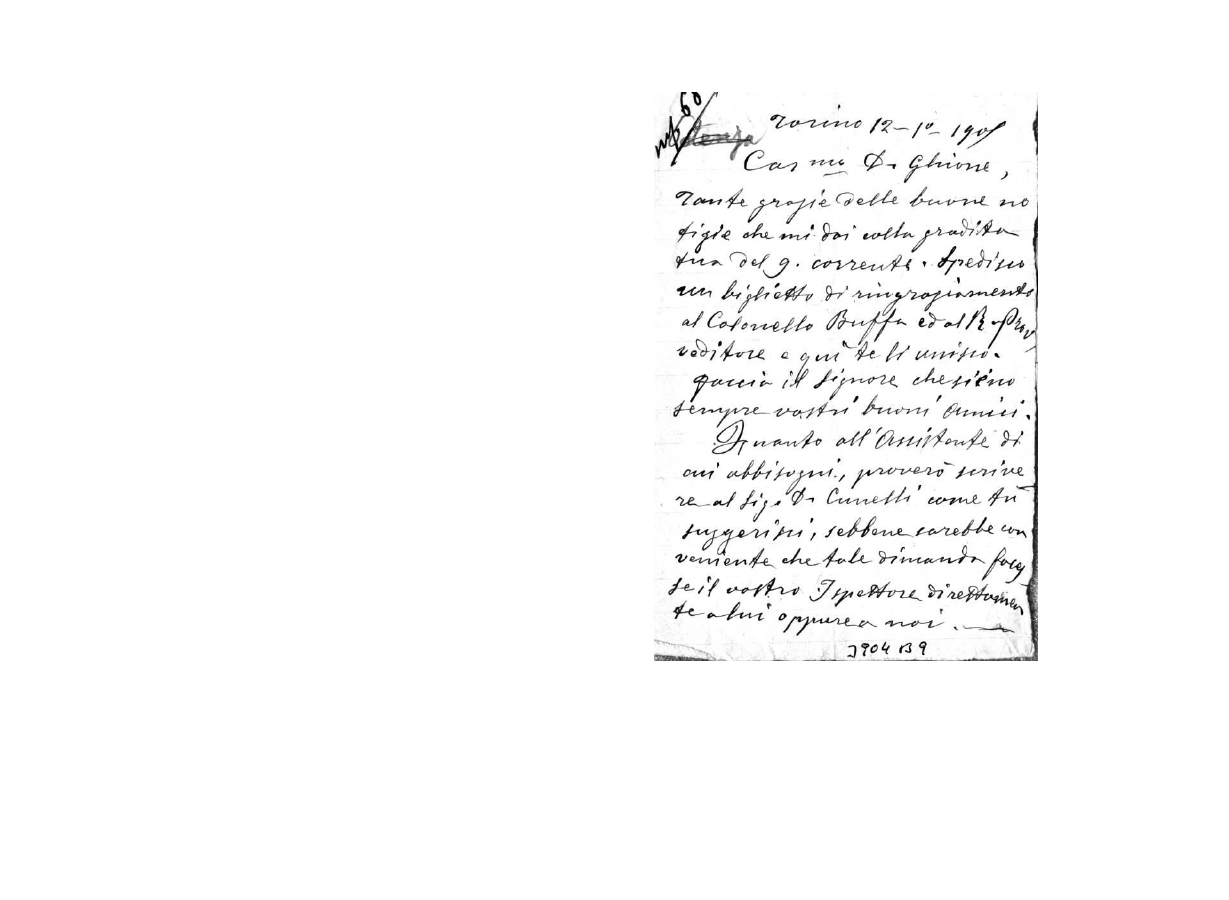 60
Torino 12-1º-190
Car mo D. Ghione,
Tante grazie delle buone no
tizie che mi dai colla gradita
tua del 9. corrente. Spedisco
un biglietto di ringraziamento
al Colonello Buffa ed al R. Prov
veditore e quì te li unisco.
Faccia il Signore che sieno
sempre vostri buoni amici.
Quanto all'Assistente di
cui abbisogni, proverò scrive
re al Sig. D. Cunelli come tu
suggerisci, sebbene sarebbe con
veniente che tale dimanda faces
se il vostro Ispettore direttamen
te a lui oppure a noi. —
3904 B 9